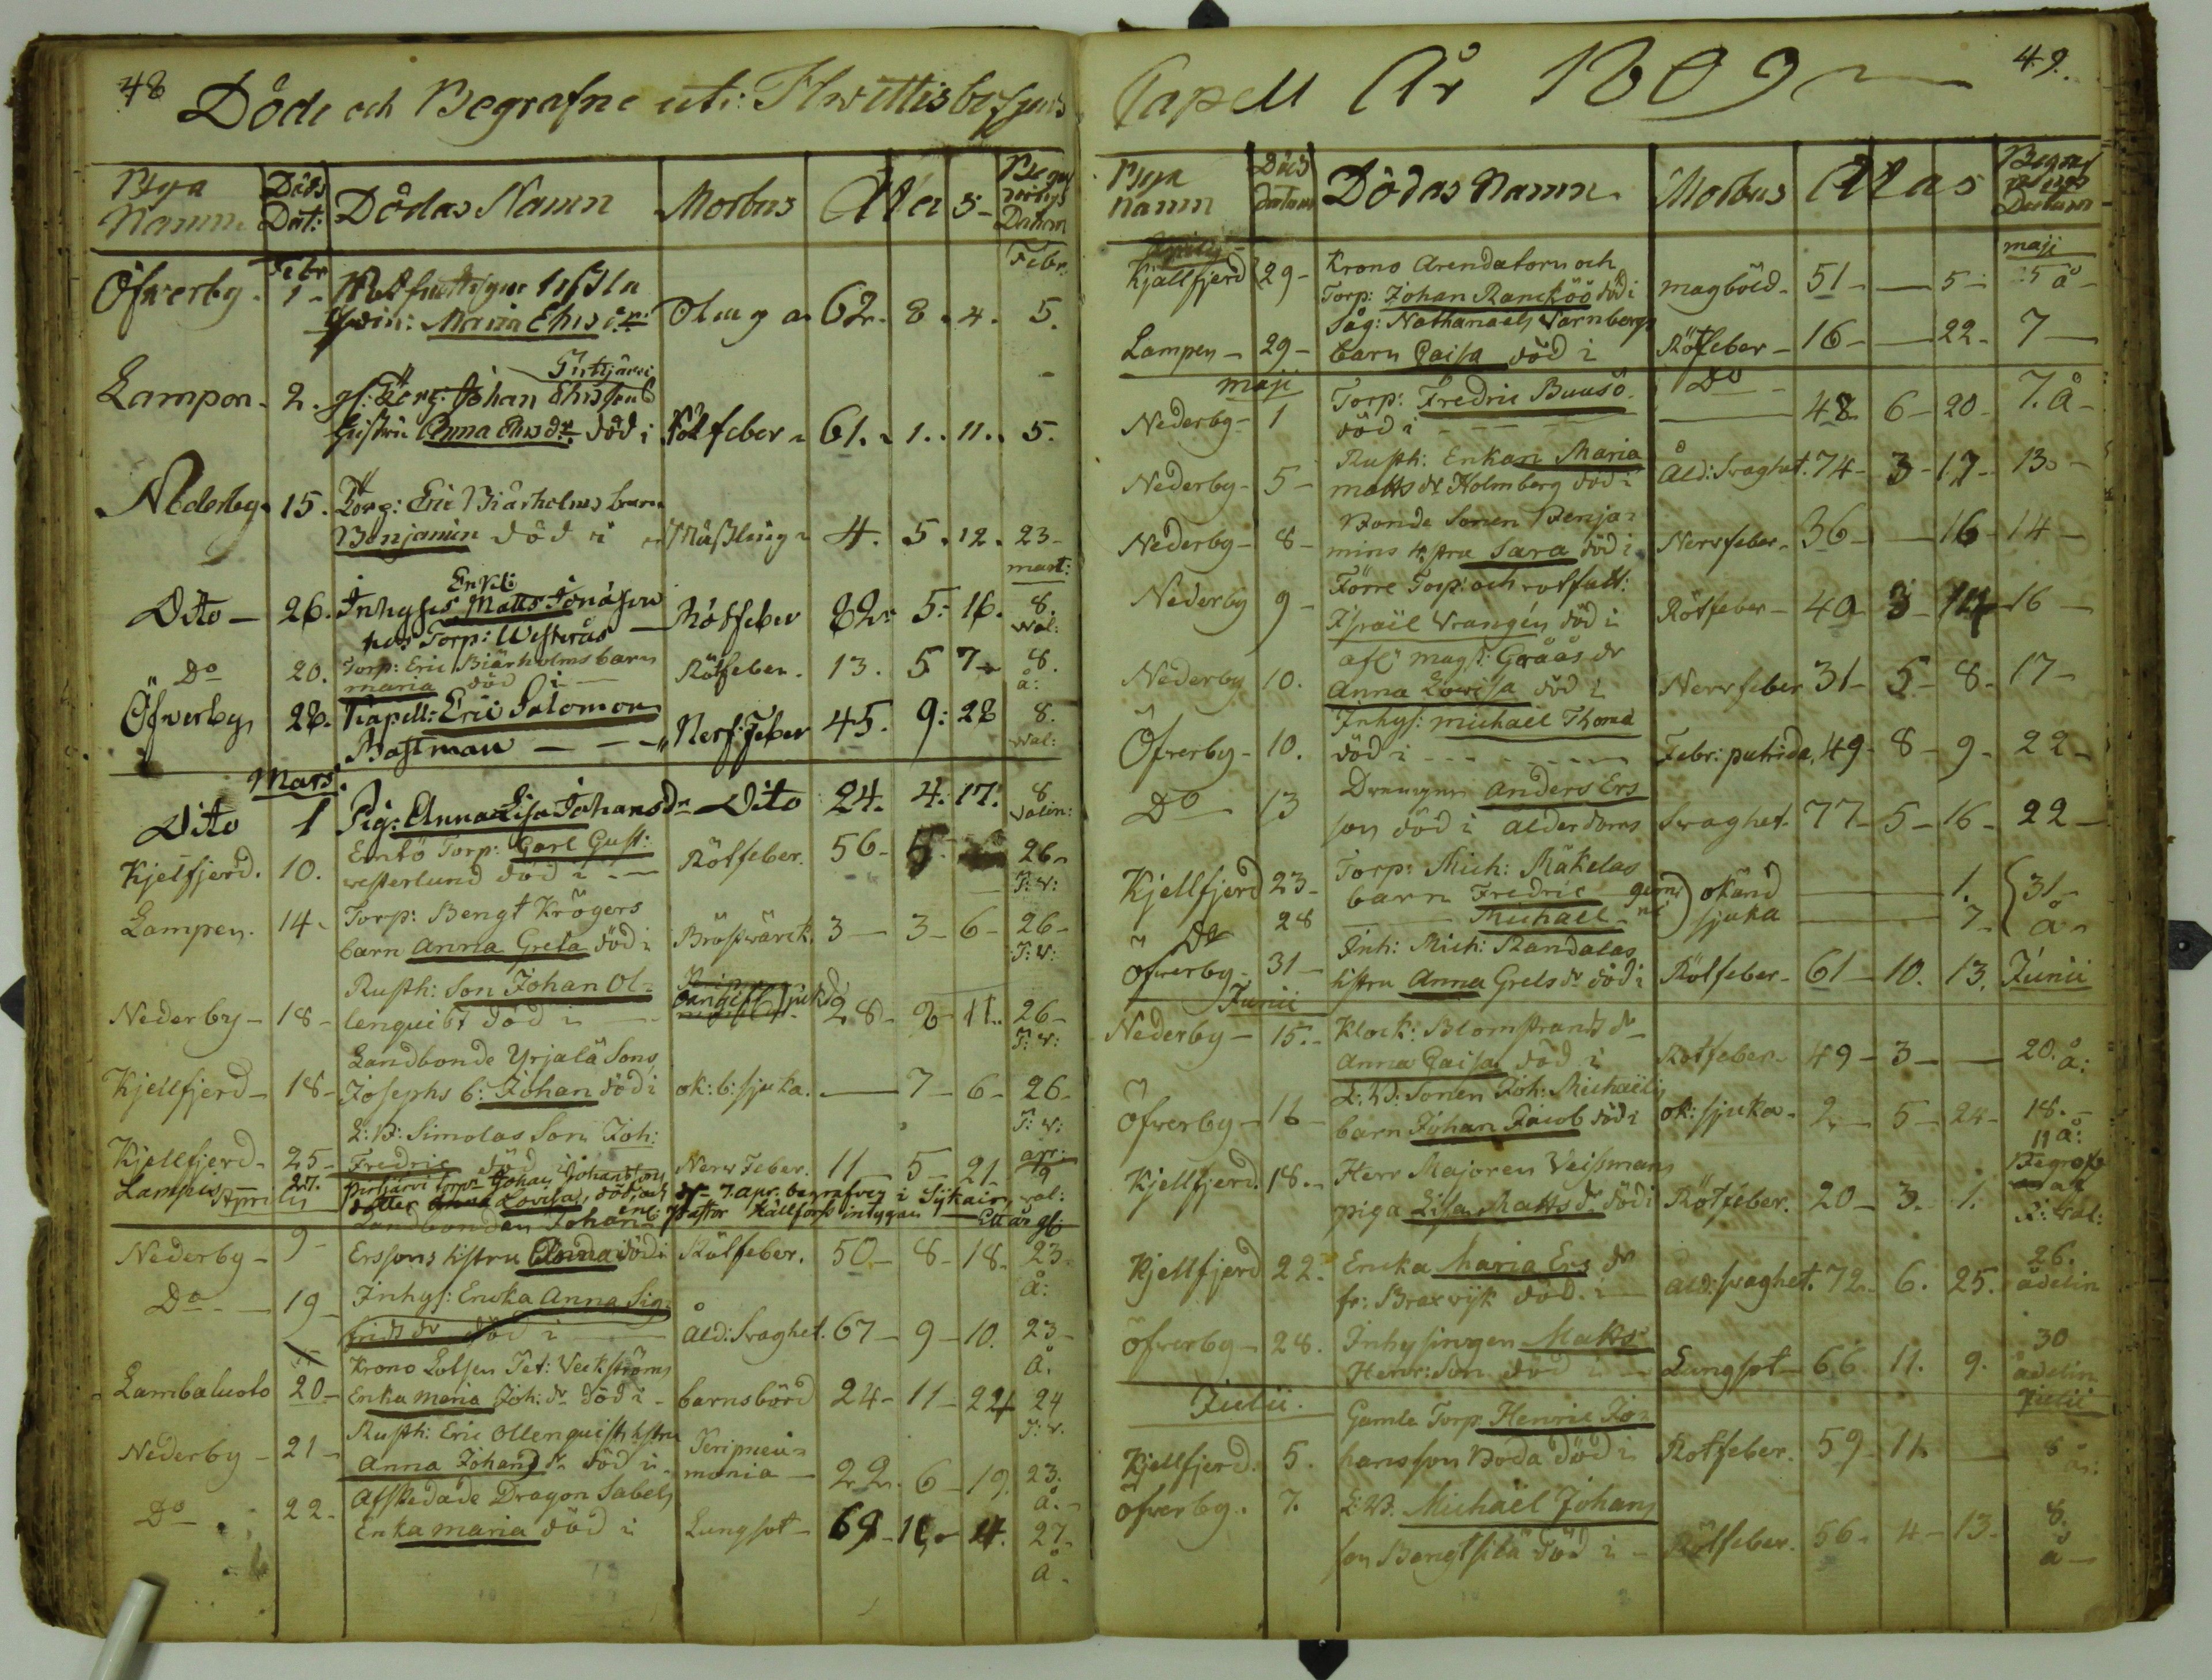 48
Döde och Begrafne uti: Hwittisbofjerds
Bya Namn
Döds Dat:
Dödas Namn
Morbus
Ætas
Begrafnings Datum
Febr
Febr.
Öfverby. 1 -
Maria
62. 8. 4. 5.
Lampen. 2. Johan
hustru Anna död i Rötfeber 61. 1. 11. 5.
Nederby. 15. Torp: Eric Biörholms barn
Benjamin död i Mäßling 4. 5. 12. 23 -
mart:
Enkl:
Dito - 26. Inhyses Matts Jonason
hos Torp: Westerås Rötfeber 82. 5: 16. 8.
Wal:
Do 20. Torp: Eric Biörholms barn
maria död i Rötfeber. 13. 5 7 8.
å:
Öfverby 28. Kapell: Eric Salomon
Bastman - - - Nerf:feber 45. 9: 28 8.
Wal:
Mars.
Dito 1 Pig: Anna Lisa Johansdr Dito 24. 4. 17. 8
Valin:
Kjelfjerd. 10. Torp: Carl Gust:
westerlund död i - Rötfeber. 56 - 5. 26 -
T: W:
Lampen. 14 - Torp: Bengt Krögers
barn Anna Greta död i Bröstwärck. 3 - 3 - 6 - 26 -
T: W:
Nederby - 18 - Rusth: Son Johan Ol-
lenquist död i 28 - 2 - 11. 26 -
T: W:
Kjellfjerd - 18 - Landbonde Yrjalä Sons
Josephs b: Johan död i ok: b: sjuka. - 7 - 6 - 26 -
T: W:
Kjellfjerd - 25 - L: B: Simolas Son Joh:
Fredric död i Nerv Feber. 11 - 5 - 21 - apr: 9
Lampen 27. Johan Johanssons
dotter Lovisa 7. apr. begrafven i
enl: Pastor Källfors intygan Ett år gl:
Aprilis
Nederby - 9 - Landbonden Johan
Erssons hstru Anna död i Rötfeber. 50 - 8 - 18 - 23.
å:
Do - 19 - Inhys: Encka Anna Sig-
frids dr död i Åld: svaghet. 67 - 9 - 10. 23 -
å.
Lambaluoto 20 - Krono Lotsen Pet: Veckströms
Enka maria Joh: dr död i - barnsbörd 24 - 11 - 22 24
T: W.
Nederby - 21 - Rusth: Eric Ollenquists hstru
Anna Johans dr död i Peripneu-
monia - 22. 6 - 19. 23.
å. -
Do 22. Afskedade Dragon Sabels
Enka maria död i Lungsot - 69 - 10 - 4. 27 -
å.
Capell År 1809
49.
Bya Namn
Död datum
Dödas Namn
Morbus
Ætas
Begrafnings Datum
Aprilis
maji
Kjällfjerd 29 - Krono Arendatorn och
Torp: Johan Rancköö död i magböld - 51 - - 5 - 5 å -
Lampen - 29 - Såg: Nathanaels Varnbergs
barn Caisa död i Rötfeber - 16 - - 22 - 7 -
maji
Nederby - 1 Torp: Fredric Buusö -
död i - - - Do - 48 6 - 20 - 7. å -
Nederby - 5 - Rusth: Enkan Maria
matts dr Holmberg död i Åld: svaghet. 74 - 3 - 17 - 13. -
Nederby - 8 - Bonde Sonen Benja-
mins hstru Sara död i Nervfeber - 36 - - 16 - 14 -
Nederby 9 - Förre Torp: och rotfatt:
Israël Wrangén död i Rötfeber - 40 - 3 - 14 16 -
Nederby 10. afl: mag: Gråås dr
Anna Lowisa död i Nervfeber 31 - 5 - 8 - 17 -
Öfverby - 10. Inhys: michael Thoma
död i - - - Febr: putrida, 49 - 8 - 9 - 22 -
Do - 13 Drengen Anders Ers
son död i Alderdoms svaghet. 77 - 5 - 16 - 22 -
Kjellfjerd 23 - Torp: Mich: Mäkelas
barn Fredric okänd - 1. 31 -
Do 28 Michael sjuka - 7 - å -
Öfverby - 31 - Inh: Mich: Randalas
hstru Anna Grels dr död i Rötfeber - 61 - 10. 13. Junii
Junii
Nederby - 15. - Klock: Blomstrands dr
Anna Caisa död i Rötfeber - 49 - 3 - - 20. å:
Öfverby - 16 - L: B: Sonen Joh: Michaëls
barn Johan Jacob död i ok: sjuka - 2 - 5 - 24 - 18. -
å:
Kjellfjerd. 18. - Herr Majoren Veißmans
piga Lisa Matts dr död i Rötfeber. 20 - 3 - 1. Begrafv af
Wal:
Kjellfjerd 22. Encka Maria Ers dr
fr: Braxvijk död i - Åld: svaghet. 72. 6. 25. 26.
ådelin
Öfverby - 28. Inhysingen Matts
Henr: Son död i - Lungsot - 66. 11. 9. 30
ådelin
Julii.
Julii
Kjellfjerd. 5. Gamle Torp Henric Jo-
hansson Boda död i Rötfeber. 59 - 11. - 8
å:
Öfverby. 7. L: B. Michaël Johans
son Bengtsilä död i - Rötfeber. 56 - 4 - 13. 8.
å -